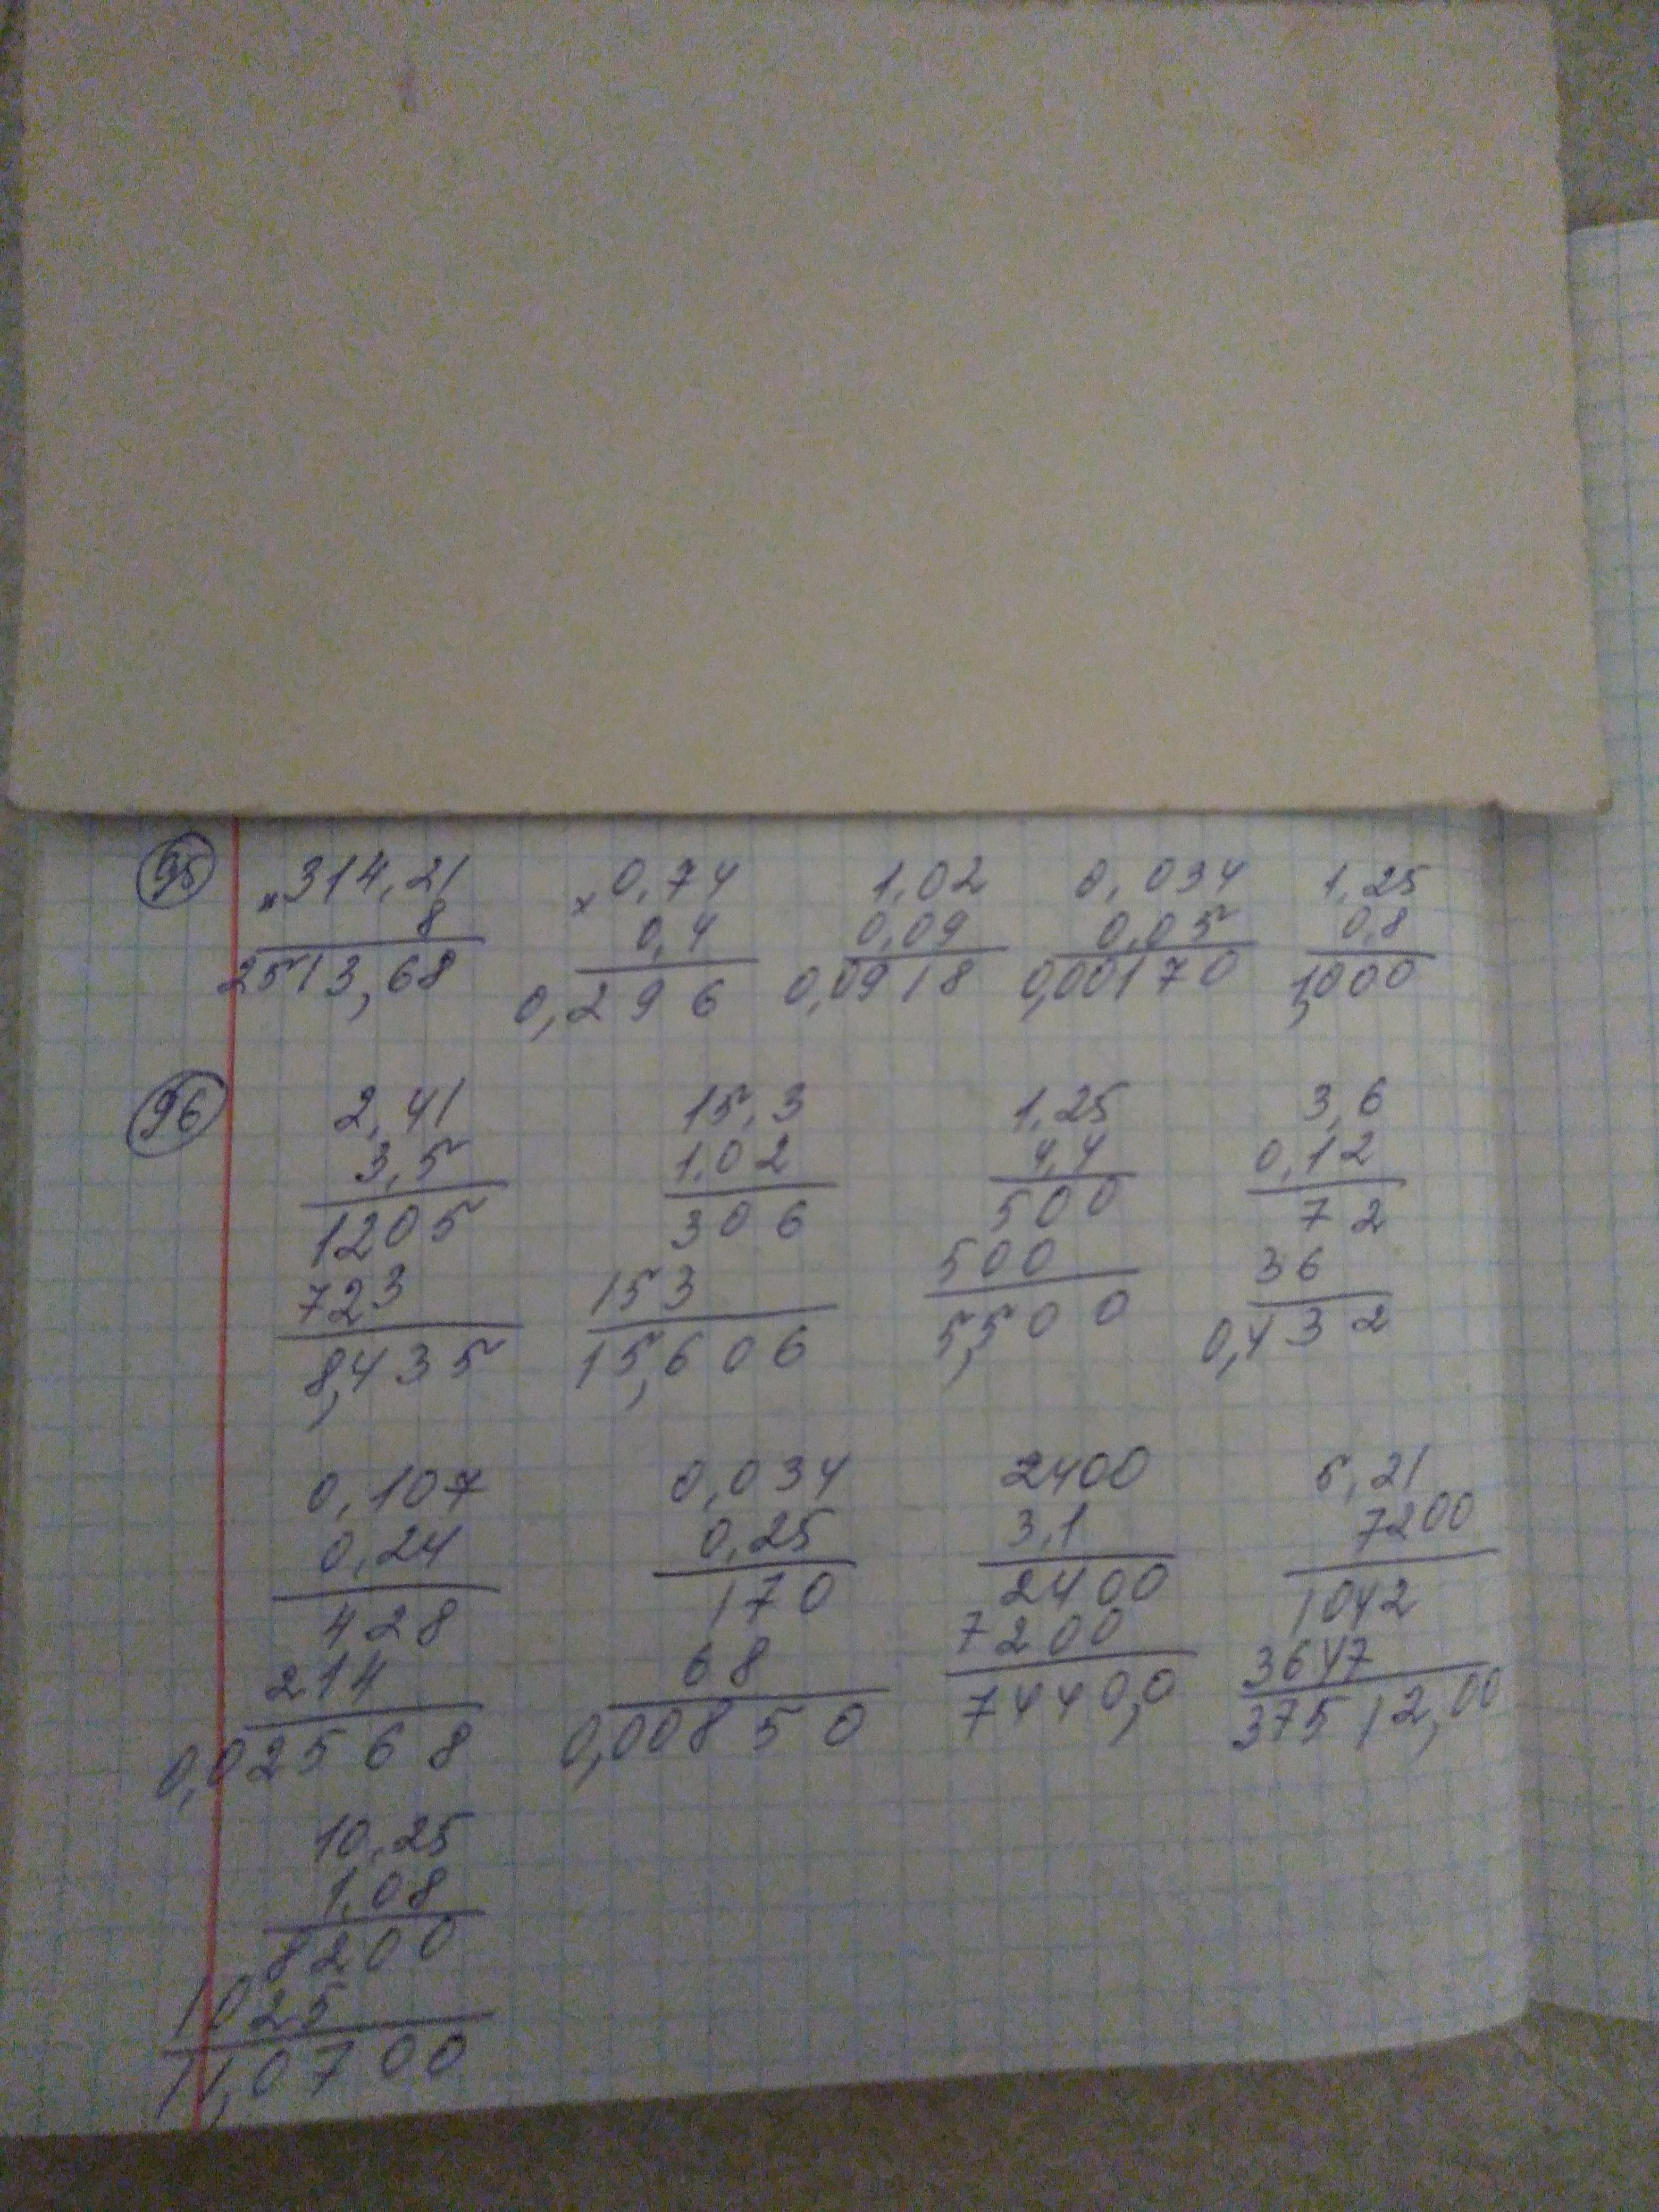 95 × 314,21 × 0,74 1,02 0,034 1,25
8 0,4 0,09 0,05 0,8
2513,68 0,296 0,0918 0,00170 1,000
96 2,41 15,3 1,25 3,6
3,5 1,02 4,4 0,12
1205 306 500 72
723 153 500 36
8,435 15,606 5,500 0,432
0,107 0,034 2400 5,21
0,24 0,25 3,1 7200
428 170 2400 1042
214 68 7200 3647
0,02568 0,00850 7440,0 37512,00
10,25
1,08
8200
1025
11,0700